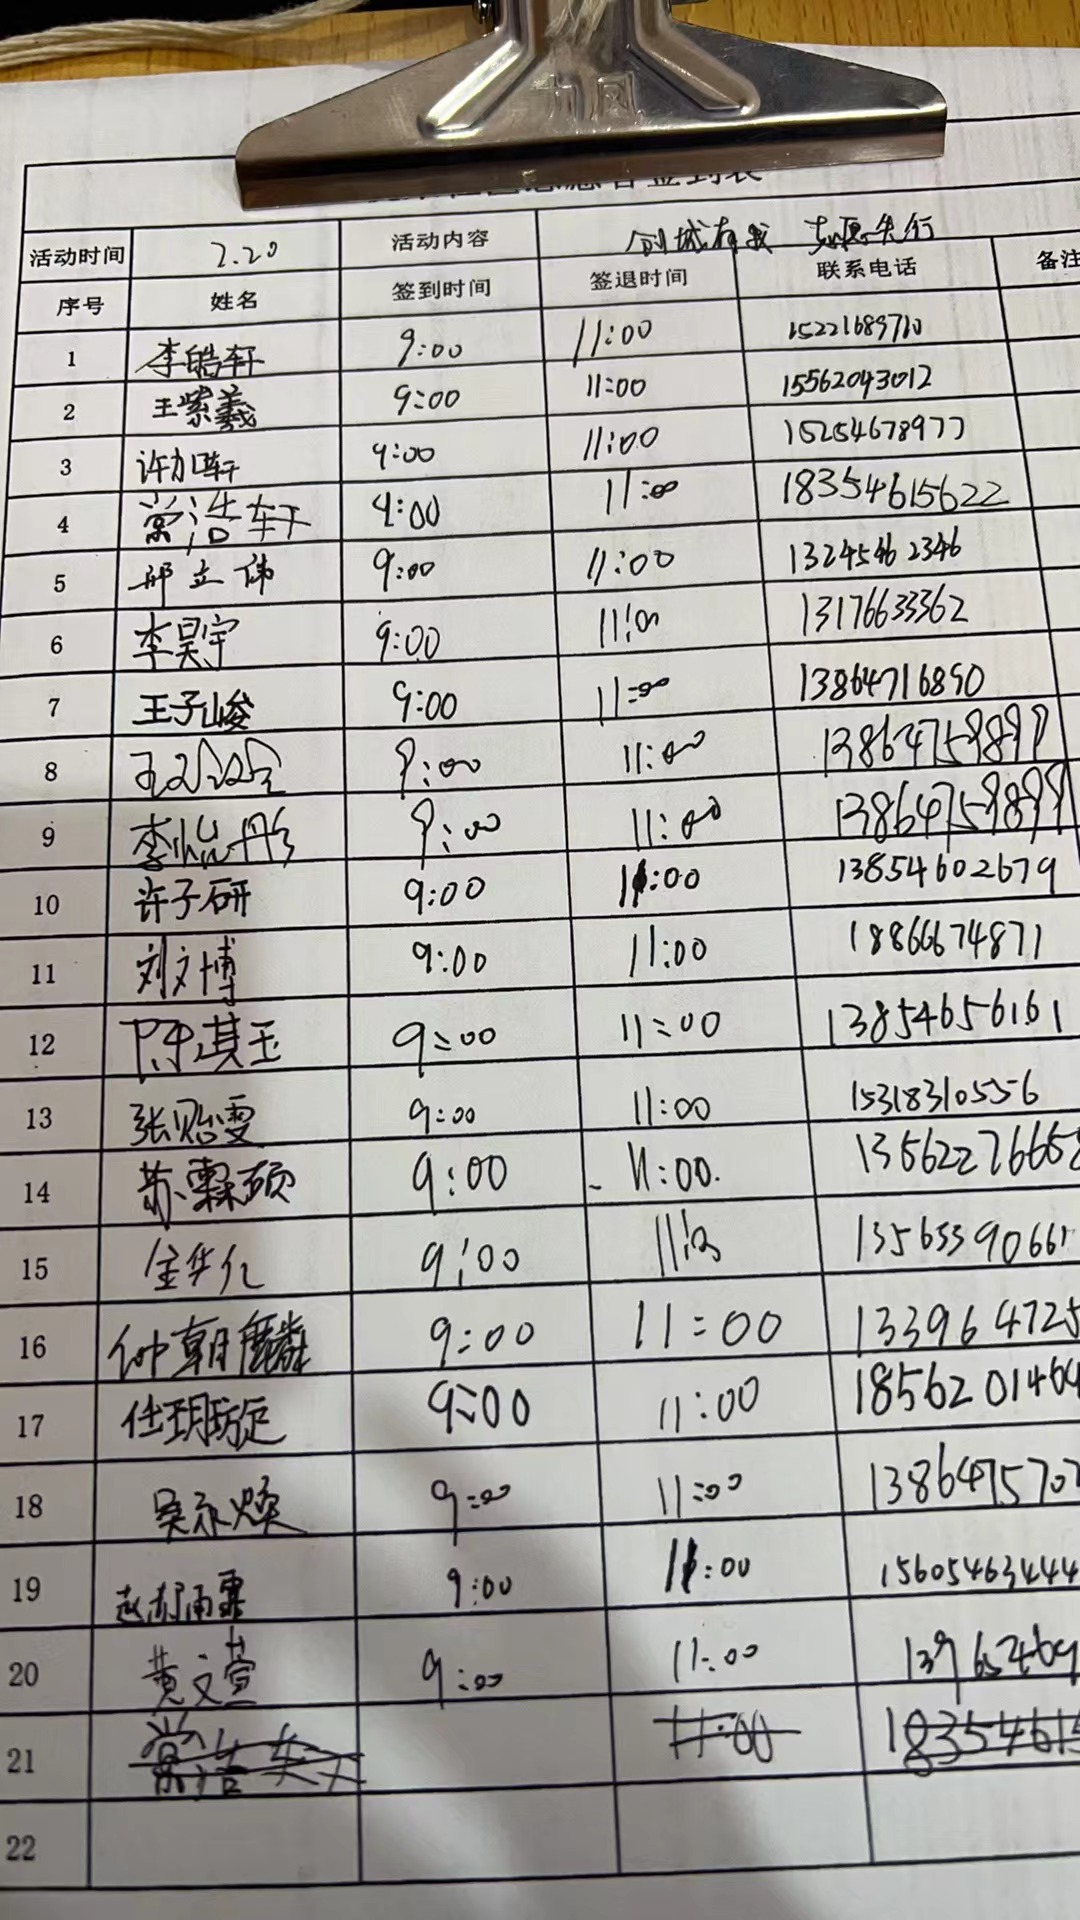 签到表
活动时间 2.20 活动内容 创城有我 志愿先行
序号 姓名 签到时间 签退时间 联系电话 备注
1 李皓轩 9:00 11:00 15221689710
2 王紫羲 9:00 11:00 15562043012
3 许加轩 9:00 11:00 15254678977
4 常浩轩 9:00 11:00 18354615622
5 邢立伟 9:00 11:00 13245462346
6 李昊宇 9:00 11:00 13176633362
7 王子峻 9:00 11:00 13864716890
8 9:00 11:00 13864759899
9 李怡彤 9:00 11:00 13864759899
10 许子研 9:00 11:00 13854602679
11 刘文博 9:00 11:00 18866674871
12 陈其玉 9:00 11:00 13854656161
13 张贻雯 9:00 11:00 15318310556
14 苏霖硕 9:00 11:00 1356227665
15 金华亿 9:00 11:00 1356339066
16 仲朝麟 9:00 11:00 133964725
17 9:00 11:00 1856201464
18 吴永焕 9:00 11:00 138647570
19 9:00 11:00 15605463444
20 黄文萱 9:00 11:00
21 常浩轩 11:00 18354615
22